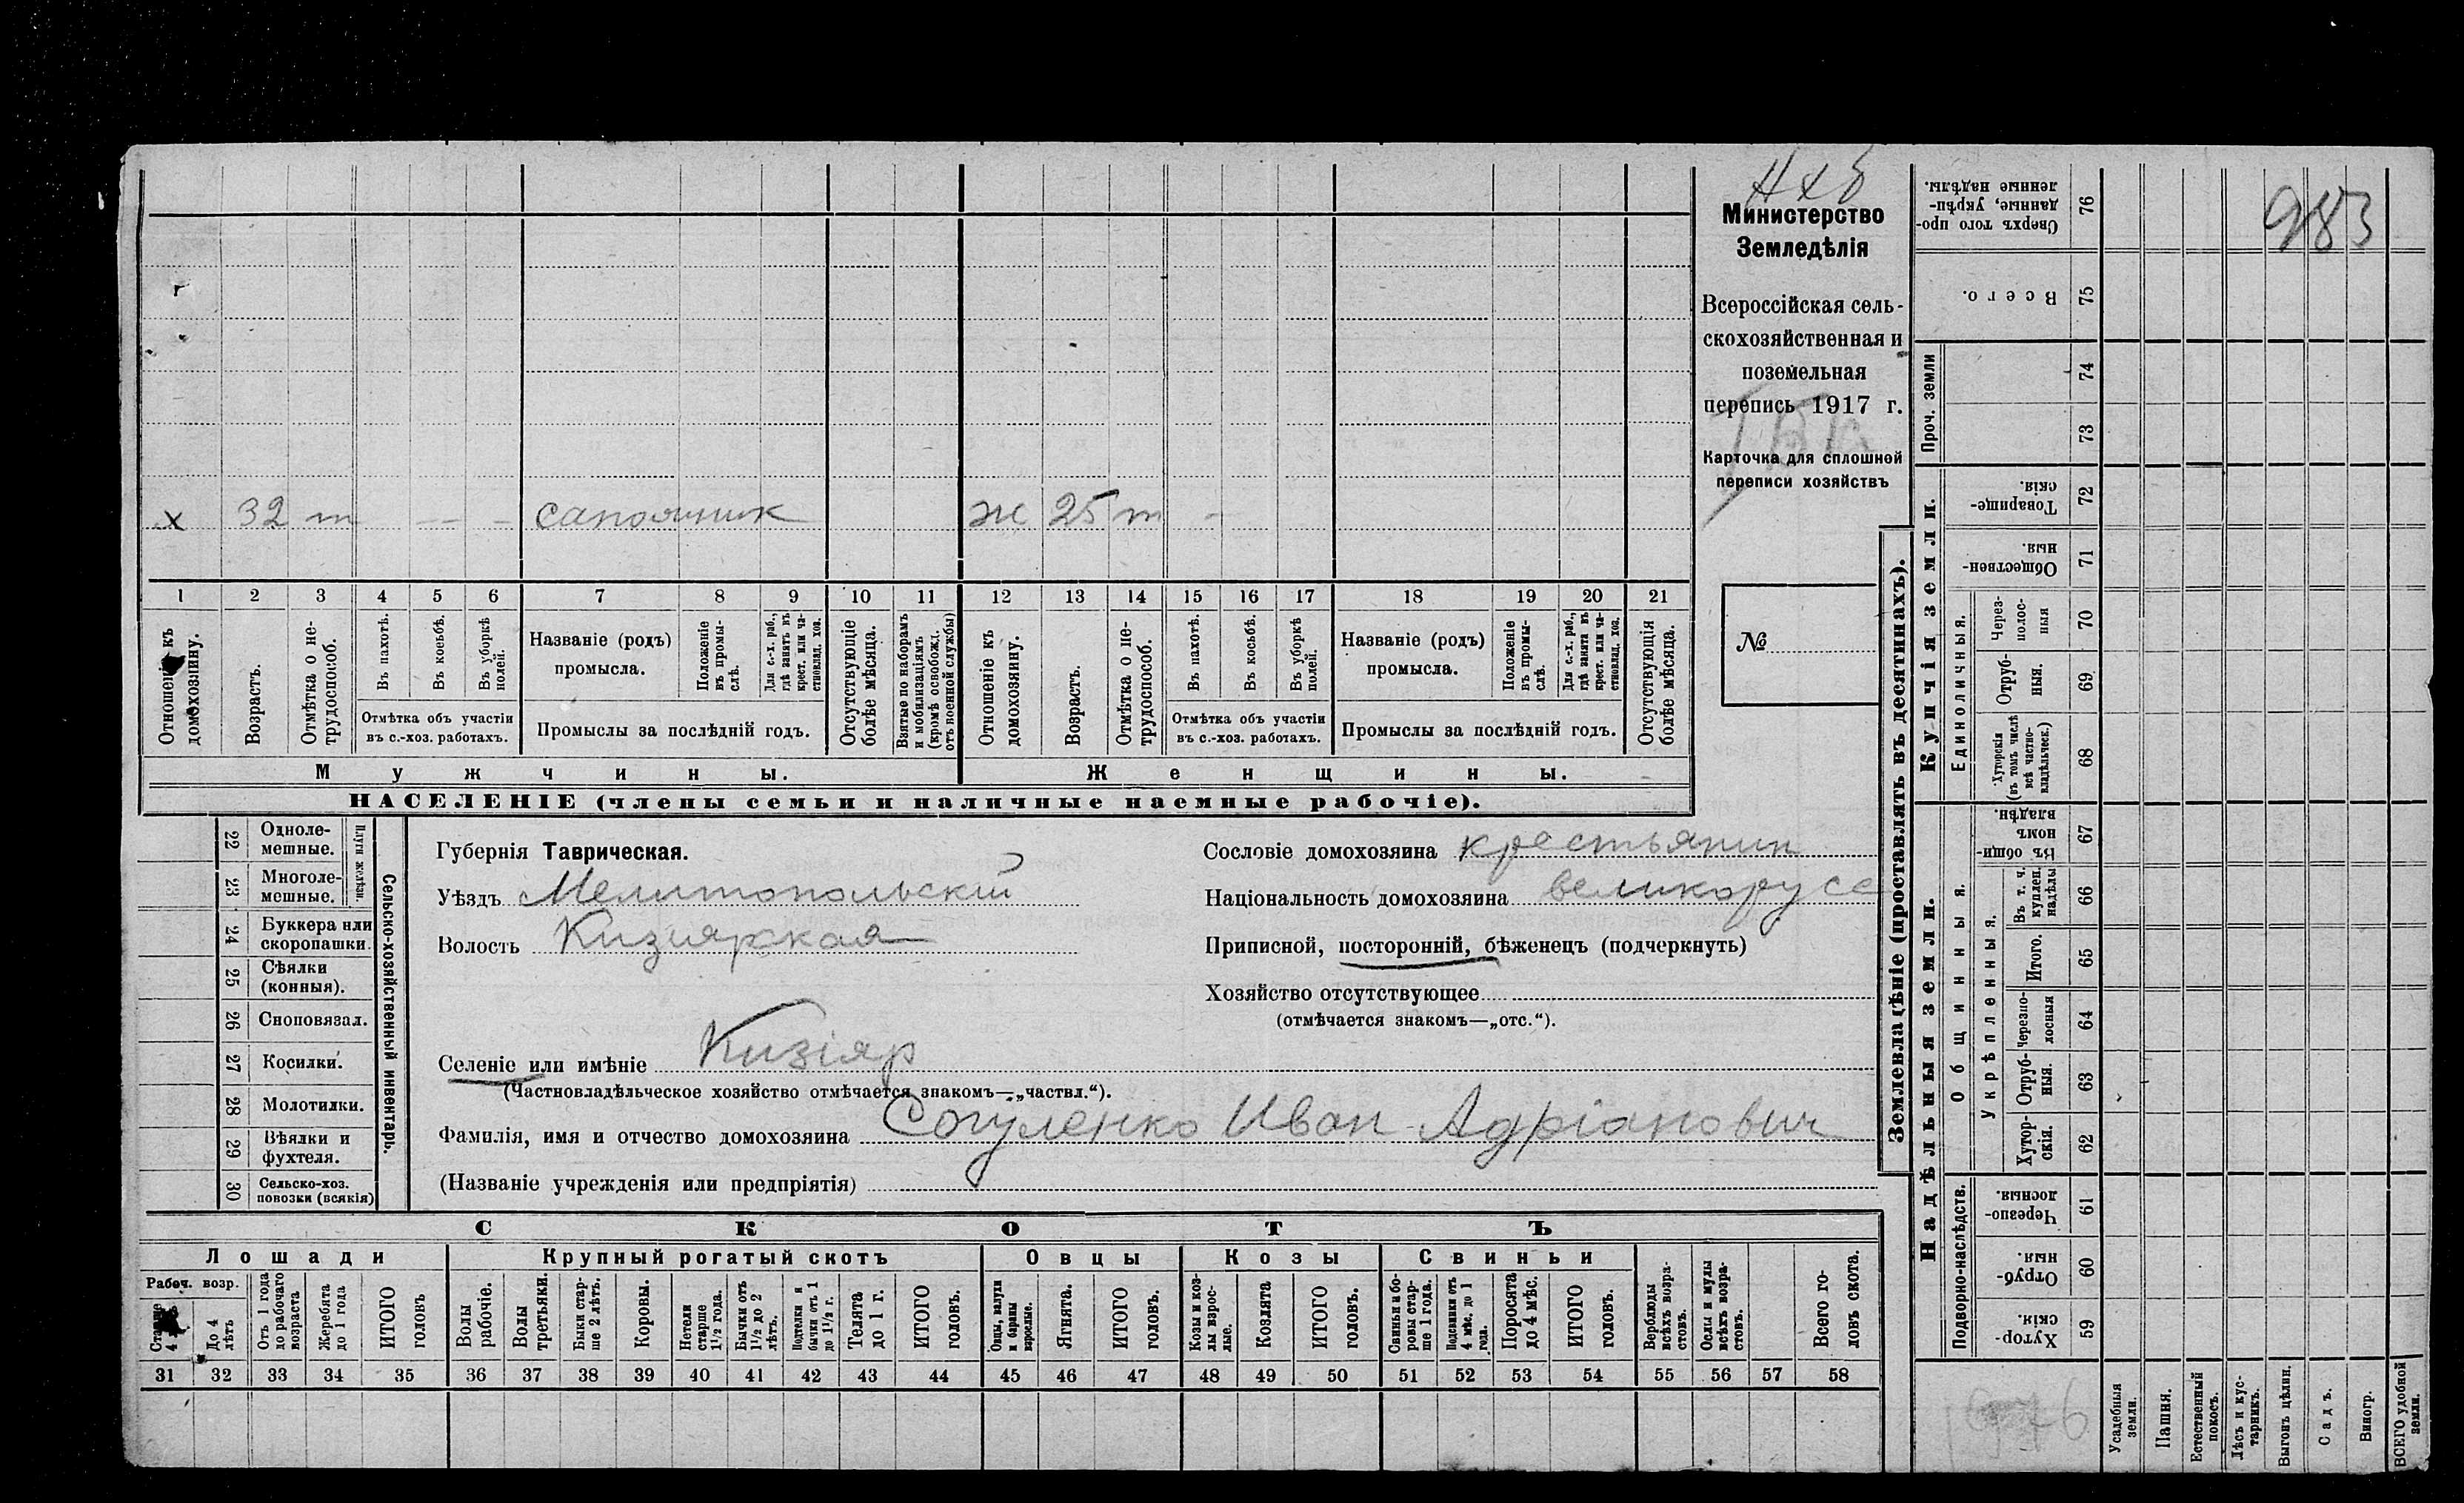 Нхб
Министерство
Земледѣлія
Всероссійская сель-
скохозяйственная и
поземельная
перепись 1917 г.
Карточка для сплошной
переписи хозяйствъ
№
983
х 32 т — — — сапожник ж 25 т -
1 2 3 4 5 6 7 8 9 10 11 12 13 14 15 16 17 18 19 20 21
Отношеніе къ домохозяину.
Возрастъ.
Отмѣтка о не-трудоспособ.
Въ пахотѣ.
Въ косьбѣ.
Въ уборкѣ полей.
Отмѣтка объ участіи
въ с.-хоз. работахъ.
Названіе (родъ)
промысла.
Положеніе въ промы-слѣ.
Для с.-х. раб., гдѣ занятъ въ крест. или ча-стновлад. хоз.
Промыслы за послѣдній годъ.
Отсутствующіе болѣе мѣсяца.
Взятые по наборамъ и мобилизаціямъ (кромѣ освобожд. отъ военной службы)
Отношеніе къ домохозяину.
Возрастъ.
Отмѣтка о не-трудоспособ.
Въ пахотѣ.
Въ косьбѣ.
Въ уборкѣ полей.
Отмѣтка объ участіи
въ с.-хоз. работахъ.
Названіе (родъ)
промысла.
Положеніе въ промы-слѣ.
Для с.-х. раб., гдѣ занята въ крест. или ча-стновлад. хоз.
Промыслы за послѣдній годъ.
Отсутствующія болѣе мѣсяца.
Мужчины.
Женщины.
НАСЕЛЕНІЕ (члены семьи и наличные наемные рабочіе).
22 Одноле-мешные.
23 Многоле-мешные.
Плуги желѣзн.
24 Буккера или скоропашки.
25 Сѣялки (конныя).
26 Сноповязал.
27 Косилки.
28 Молотилки.
29 Вѣялки и фухтеля.
30 Сельско-хоз. повозки (всякія)
Сельско-хозяйственный инвентарь.
Губернія Таврическая.
Уѣздъ Мелитопольскій
Волость Кизиярская
Сословіе домохозяина крестьянин
Національность домохозяина великорусс
Приписной, посторонній, бѣженецъ (подчеркнуть)
Хозяйство отсутствующее
(отмѣчается знакомъ—„отс.“).
Селеніе или имѣніе Кизіяр
(Частновладѣльческое хозяйство отмѣчается знакомъ—„частвл.“).
Фамилія, имя и отчество домохозяина Согуленко Иван Адріанович
(Названіе учрежденія или предпріятія)
СКОТЪ
Лошади
Крупный рогатый скотъ
Овцы
Козы
Свиньи
Рабоч. возр.
Старше 4 лѣтъ
До 4 лѣтъ
Отъ 1 года до рабочаго возраста
Жеребята до 1 года
ИТОГО головъ
Волы рабочіе.
Волы третьяки.
Быки стар-ше 2 лѣтъ.
Коровы.
Нетели старше 1½ года.
Бычки отъ 1½ до 2 лѣтъ.
Подтелки и бычки отъ 1 до 1½ г.
Телята до 1 г.
ИТОГО головъ.
Овцы, валухи и бараны взрослые.
Ягнята.
ИТОГО головъ.
Козы и коз-лы взрос-лые.
Козлята
ИТОГО головъ.
Свиньи и бо-ровы стар-ше 1 года.
Подсвинки отъ 4 мѣс. до 1 года.
Поросята до 4 мѣс.
ИТОГО головъ.
Верблюды всѣхъ возра-стовъ.
Ослы и мулы всѣхъ возра-стовъ.
Всего го-ловъ скота.
31 32 33 34 35 36 37 38 39 40 41 42 43 44 45 46 47 48 49 50 51 52 53 54 55 56 57 58
Землевладѣніе (проставлять въ десятинахъ).
Купчія земли.
Надѣльныя земли.
Проч. земли
Единоличныя.
Общинныя.
Укрѣпленныя.
Подворно-наслѣдств.
Сверхъ того про-данные, укрѣп-ленные надѣлы. 76
Всего. 75
74
73
Товарище-скія. 72
Обществен-ныя. 71
Через-полос-ныя 70
Отруб-ныя. 69
Хуторскія (въ томъ числѣ всѣ частно-владѣльческ.) 68
Въ общин-номъ владѣн. 67
Въ т. ч. куплен. надѣлы 66
Итого. 65
Черезпо-лосныя 64
Отруб-ныя. 63
Хутор-скія. 62
Черезпо-лосныя. 61
Отруб-ныя. 60
Хутор-скія. 59
Усадебныя земли.
Пашня.
Естественный покосъ.
Лѣсъ и кус-тарникъ.
Выгонъ цѣлин.
Садъ.
Виногр.
ВСЕГО удобной земли.